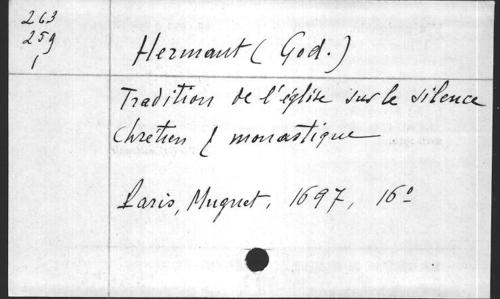 263
259
1
Hermant (God.)
Tradition de l'église sur le silence
chrétien & monastique
Paris, Muguet, 1697, 16º